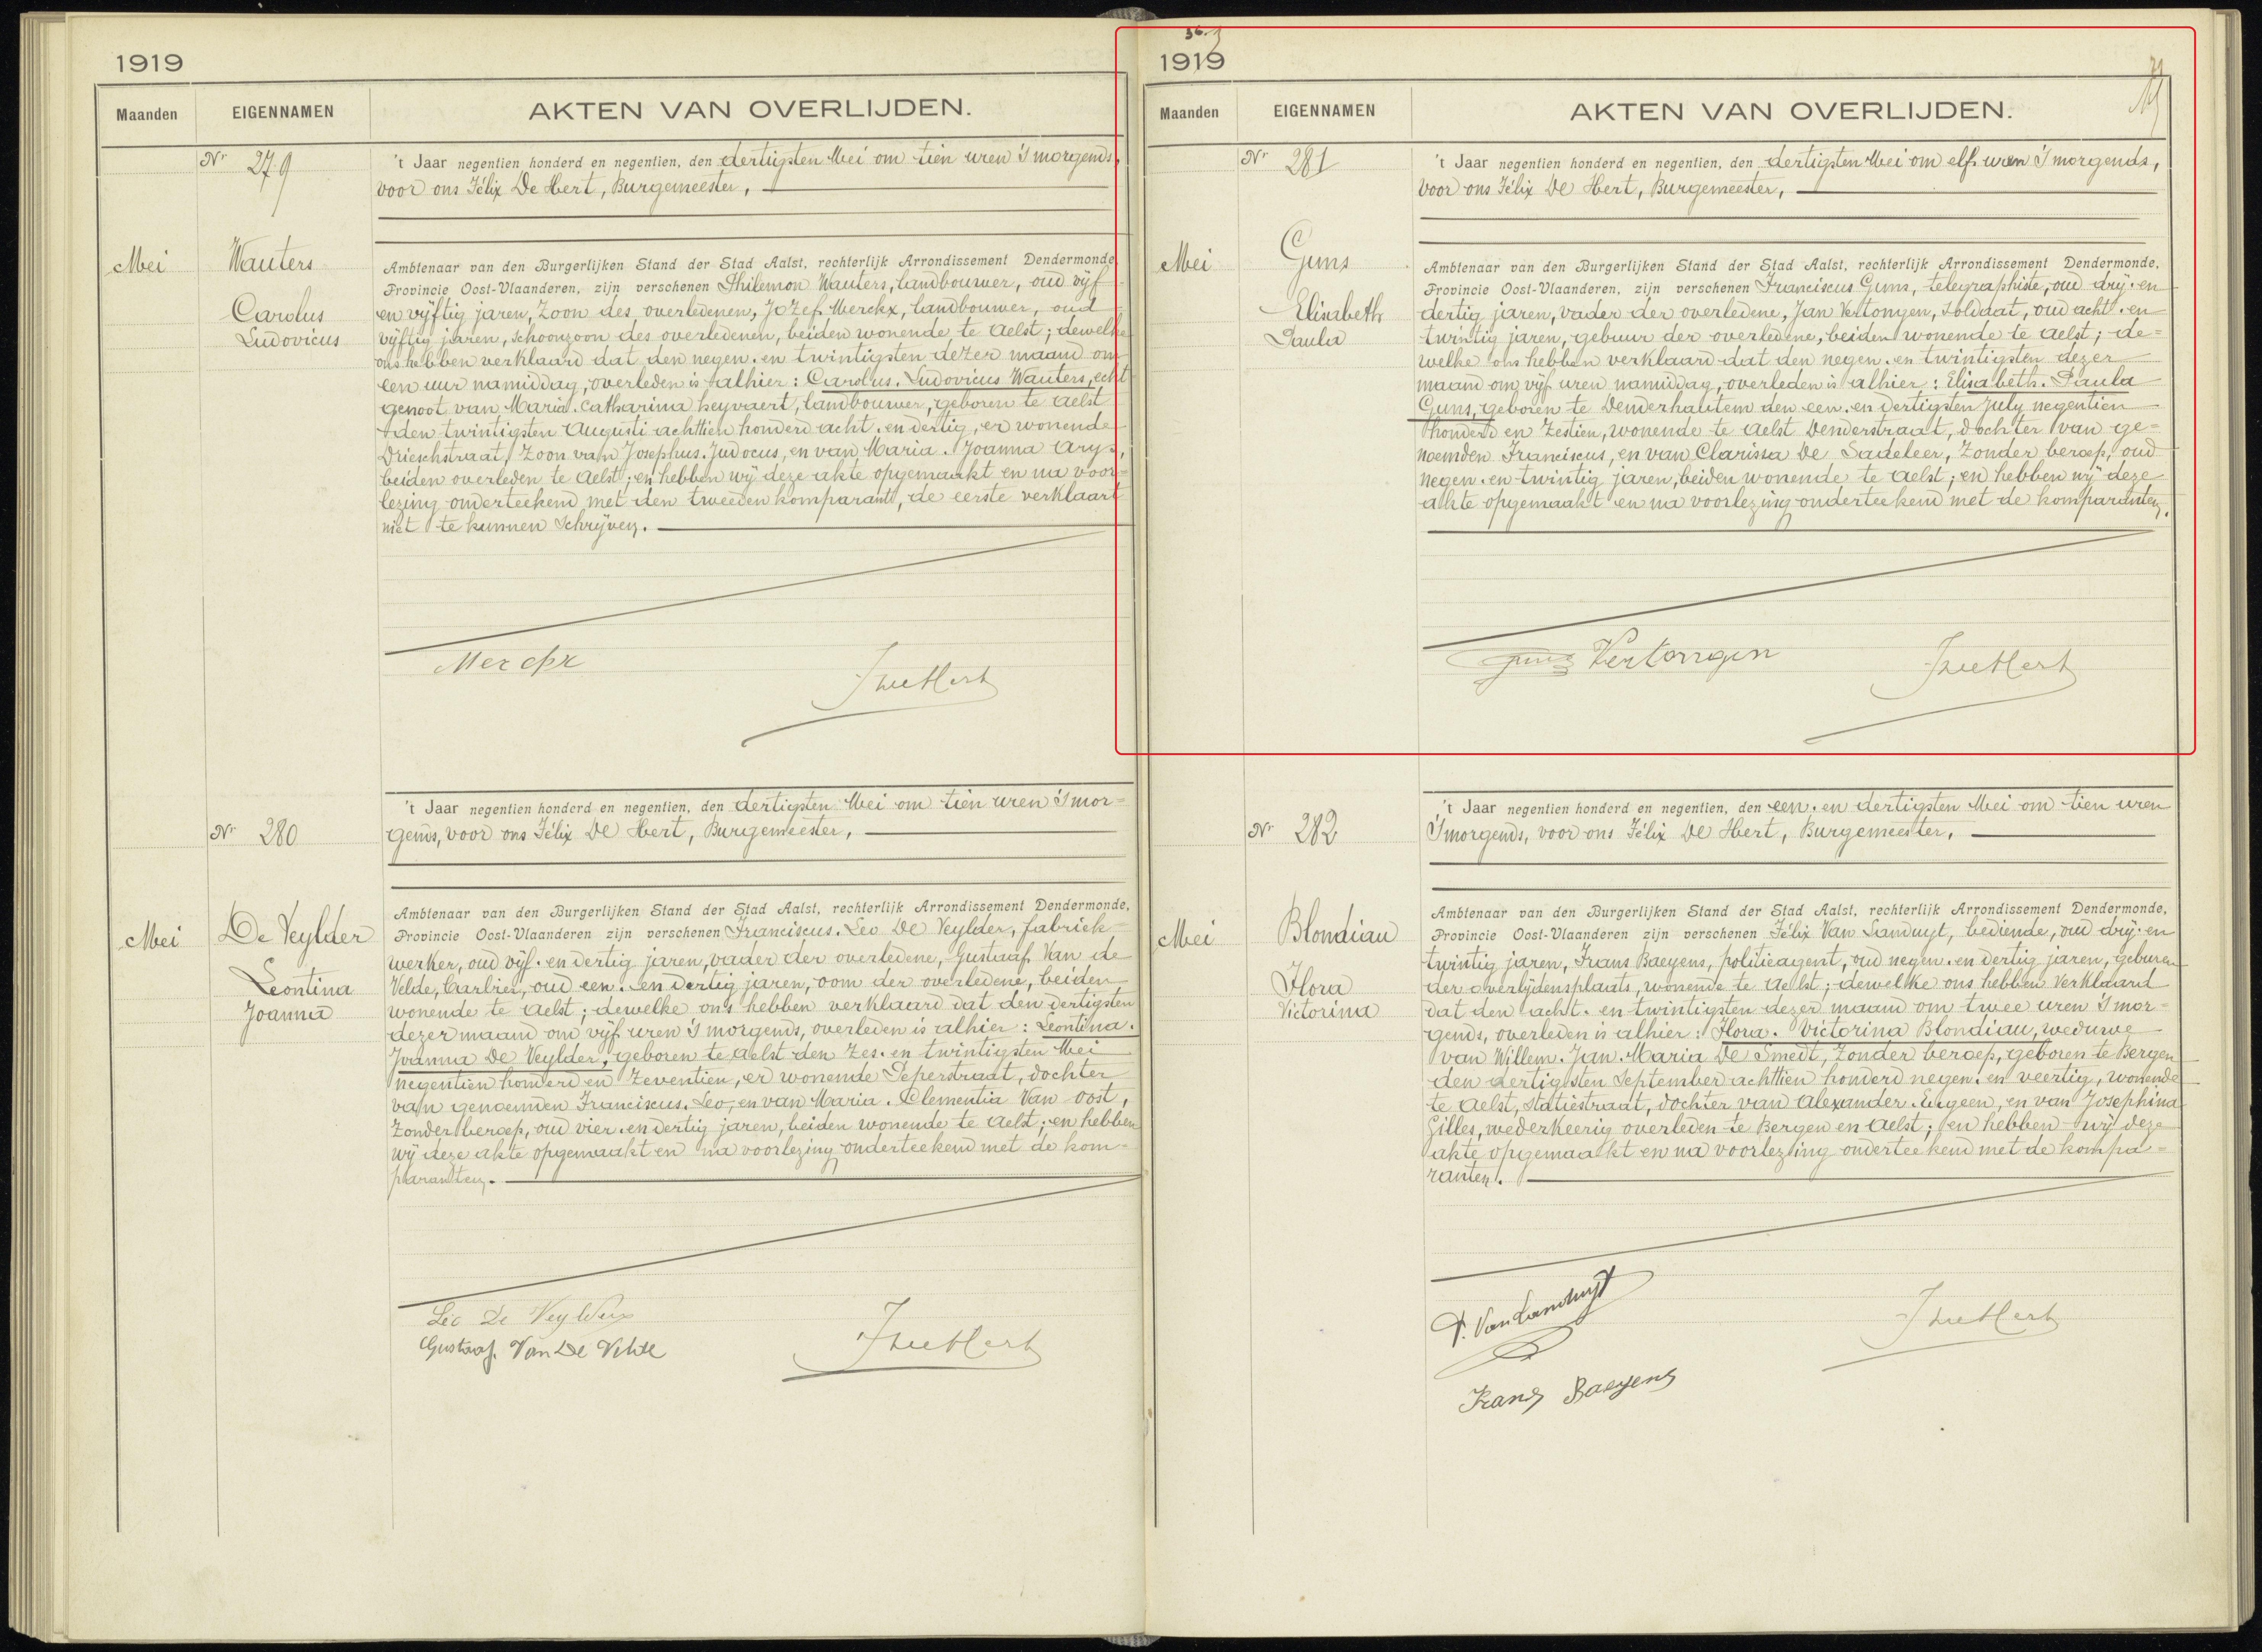 1919
Maanden
EIGENNAMEN
AKTEN VAN OVERLIJDEN.
Nr 279
't Jaar negentien honderd en negentien, den dertigsten Mei om tien uren 's morgends,
voor ons Félix De Hert, Burgemeester,
Mei
Wauters
Carolus
Ludovicus
Ambtenaar van den Burgerlijken Stand der Stad Aalst, rechterlijk Arrondissement Dendermonde,
Provincie Oost-Vlaanderen, zijn verschenen Philemon Wauters, landbouwer, oud vijf
en vijftig jaren, Zoon des overledenen, Jozef Merckx, landbouwer, oud
vijftig jaren, schoonzoon des overledenen, beiden wonende te Aelst; dewelke
ons hebben verklaard dat den negen. en twintigsten dezer maand om
een uur namiddag, overleden is alhier: Carolus. Ludovicus Wauters, echt
genoot van Maria. Catharina heyvaert, landbouwer, geboren te Aelst
den twintigsten Augusti achttien honderd acht. en dertig, er wonende
Drieschstraat, Zoon van Josephus. Judocus, en van Maria. Joanna Arys,
beiden overleden te Aelst; en hebben wij deze akte opgemaakt en na voor=
lezing onderteekend met den tweeden komparant, de eerste verklaart
niet te kunnen schrijven.
Merckx
FDeHert
Nr 280
't Jaar negentien honderd en negentien, den dertigsten Mei om tien uren 's mor=
gends, voor ons Félix De Hert, Burgemeester,
Mei
De Veylder
Leontina
Joanna
Ambtenaar van den Burgerlijken Stand der Stad Aalst, rechterlijk Arrondissement Dendermonde,
Provincie Oost-Vlaanderen zijn verschenen Franciscus. Leo De Veylder, fabriek=
werker, oud vijf. en dertig jaren, vader der overledene, Gustaaf Van de
Velde, barbier, oud een. en dertig jaren, oom der overledene, beiden
wonende te Aelst; dewelke ons hebben verklaard dat den dertigsten
dezer maand om vijf uren 's morgends, overleden is alhier: Leontina.
Joanna De Veylder, geboren te Aelst den zes. en twintigsten Mei
negentien honderd en zeventien, er wonende Peperstraat, dochter
van genoemden Franciscus. Leo, en van Maria. Clementia Van Oost,
Zonder beroep, oud vier. en dertig jaren, beiden wonende te Aelst; en hebben
wij deze akte opgemaakt en na voorlezing onderteekend met de kom=
paranten.
Leo De Veylder
Gustaaf Van De Velde
FDeHert
36.
1919
Maanden
EIGENNAMEN
AKTEN VAN OVERLIJDEN.
Nr 281
't Jaar negentien honderd en negentien, den dertigsten Mei om elf uren 's morgends,
voor ons Félix De Hert, Burgemeester,
Mei
Guns
Elisabeth
Paula
Ambtenaar van den Burgerlijken Stand der Stad Aalst, rechterlijk Arrondissement Dendermonde,
Provincie Oost-Vlaanderen, zijn verschenen Franciscus Guns, telegraphiste, oud drij. en
dertig jaren, vader der overledene, Jan Vertongen, soldaat, oud acht. en
twintig jaren, gebuur der overledene, beiden wonende te Aelst; de=
welke ons hebben verklaard dat den negen. en twintigsten dezer
maand om vijf uren namiddag, overleden is alhier: Elisabeth. Paula
Guns, geboren te Denderhautem den een. en dertigsten July negentien
honderd en zestien, wonende te Aelst Denderstraat, dochter van ge=
noemden Franciscus, en van Clarissa De Sadeleer, Zonder beroep, oud
negen. en twintig jaren, beiden wonende te Aelst; en hebben wij deze
akte opgemaakt en na voorlezing onderteekend met de komparanten.
Guns Vertongen
FDeHert
Nr 282
't Jaar negentien honderd en negentien, den een. en dertigsten Mei om tien uren
's morgends, voor ons Félix De Hert, Burgemeester,
Mei
Blondiau
Flora
Victorina
Ambtenaar van den Burgerlijken Stand der Stad Aalst, rechterlijk Arrondissement Dendermonde,
Provincie Oost-Vlaanderen zijn verschenen Félix Van Landuyt, bediende, oud drij. en
twintig jaren, Frans Baeyens, politieagent, oud negen. en dertig jaren, geburen
der overlijdensplaats, wonende te Aelst; dewelke ons hebben verklaard
dat den acht. en twintigsten dezer maand om twee uren 's mor=
gends, overleden is alhier: Flora. Victorina Blondiau, weduwe
van Willem. Jan. Maria De Smedt, Zonder beroep, geboren te Bergen
den dertigsten September achttien honderd negen. en veertig, wonende
te Aelst, Statiestraat, dochter van Alexander. Eugeen, en van Josephina
Gilles, wederkeerig overleden te Bergen en Aelst; en hebben wij deze
akte opgemaakt en na voorlezing onderteekend met de kompa=
ranten.
F. Van Landuyt
Frans Baeyens
FDeHert